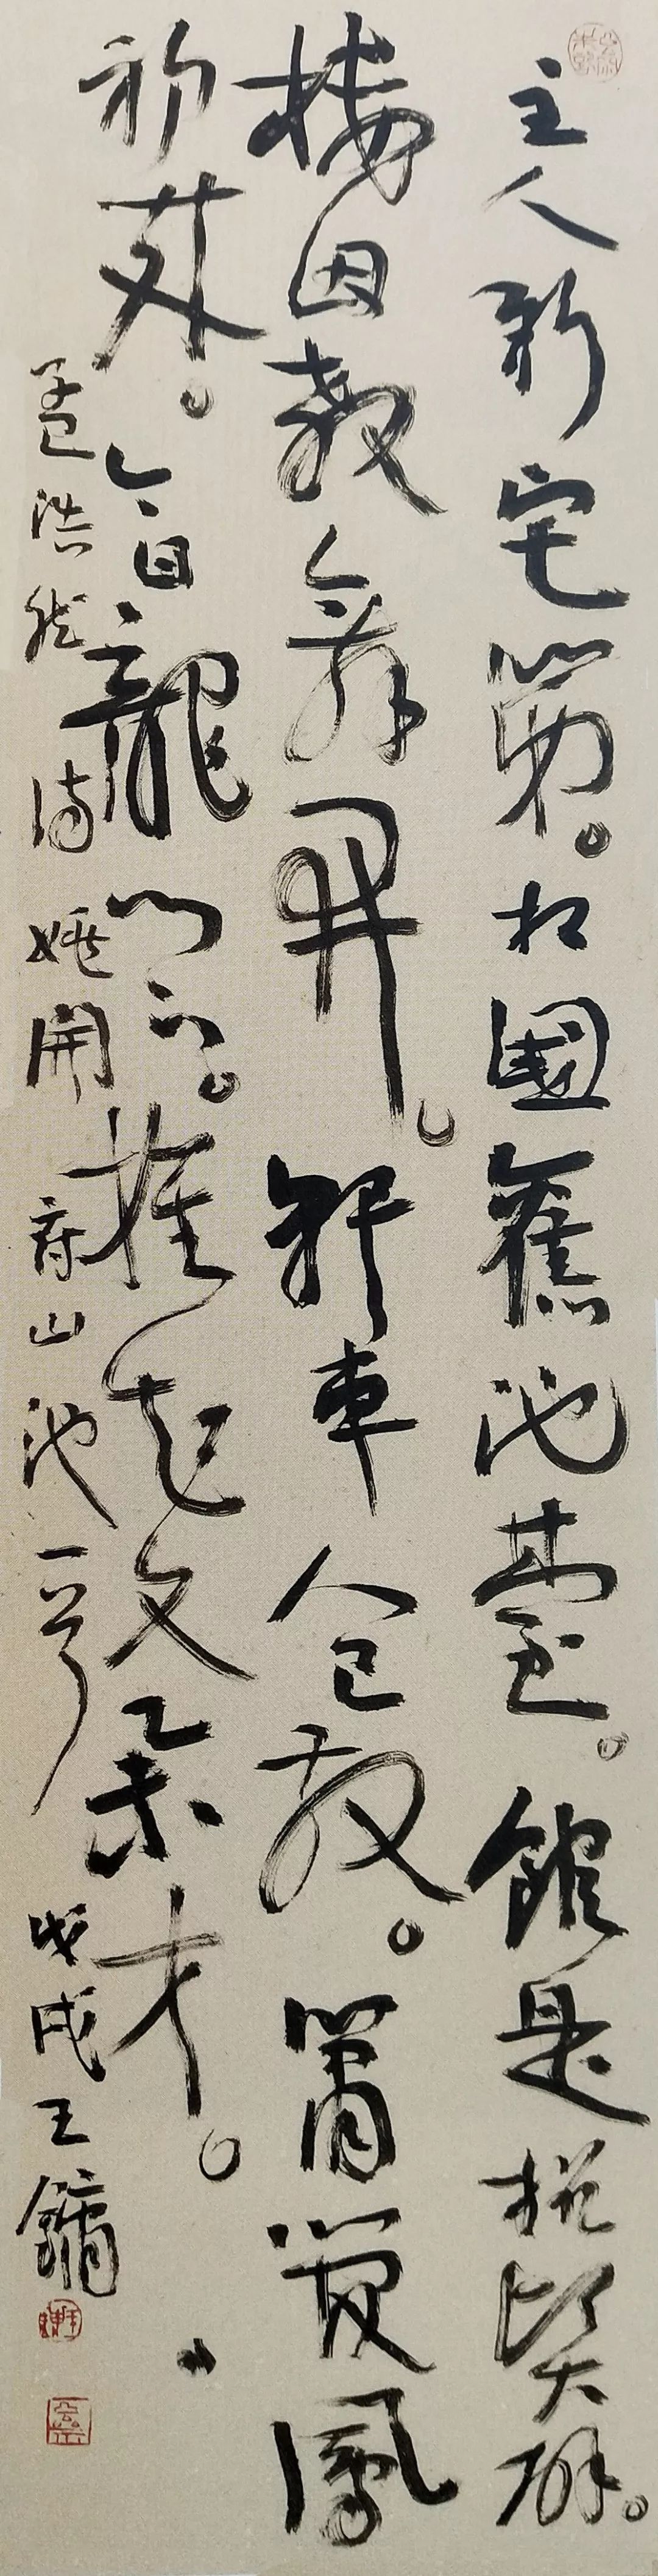 主人新宅第。相國舊池臺。館是招賢辟。
樓因教舞開。軒車人已散。簫管鳳
初來。今日龍門下。推起文舉才。
孟浩然詩姚開府山池一首 戊戌王鏞